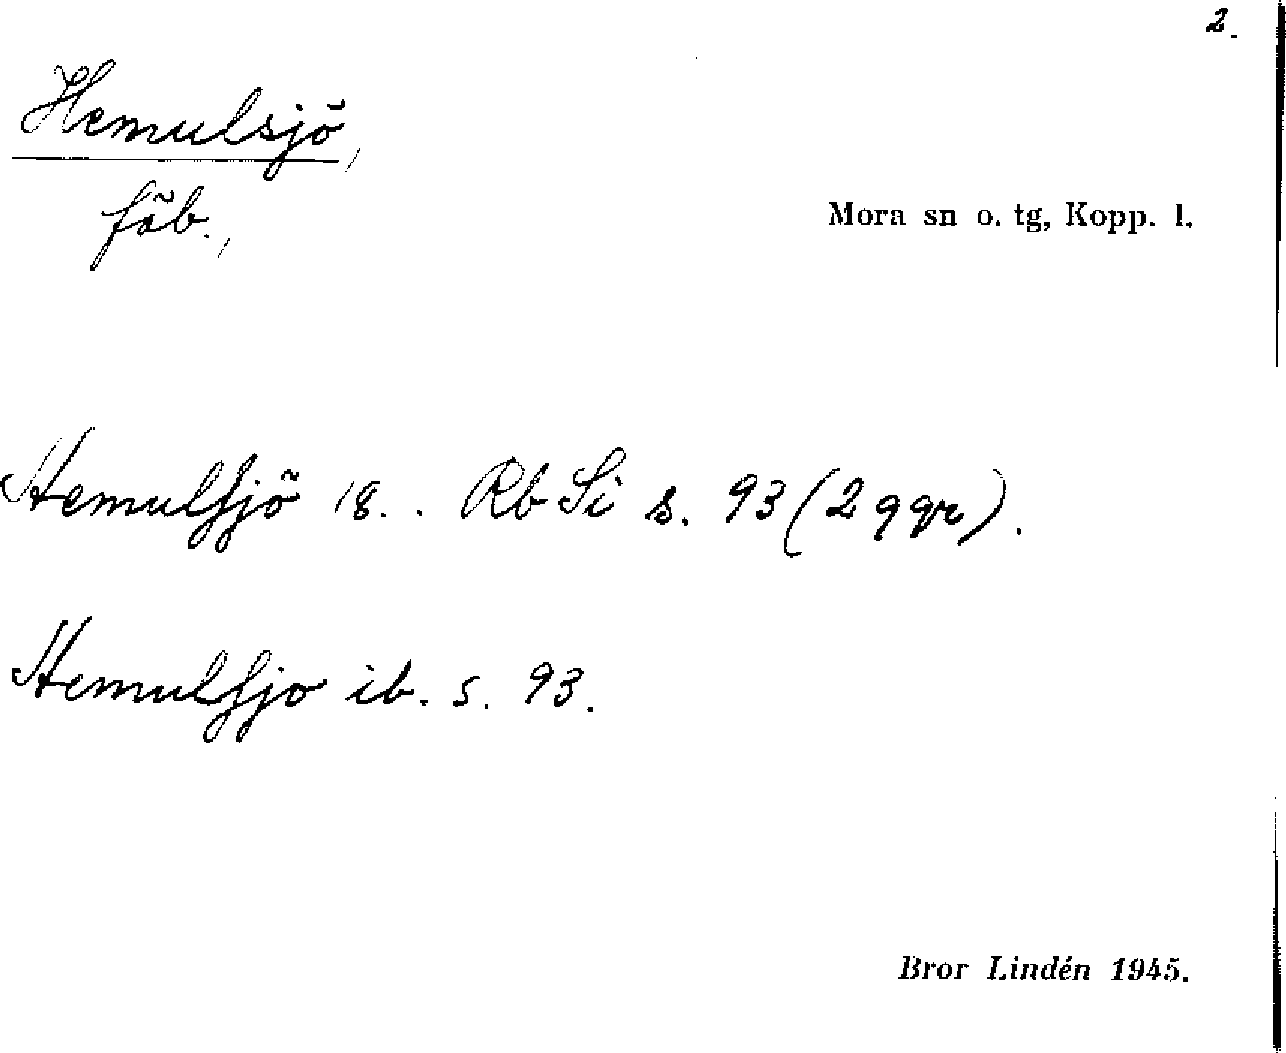 2.
Hemulsjö,
fäb.,
Mora sn o. tg, Kopp. l.
Hemulsjö 18.. Rb Si s. 93 (2 ggr).
Hemulsjo ib. s. 93.
Bror Lindén 1945.